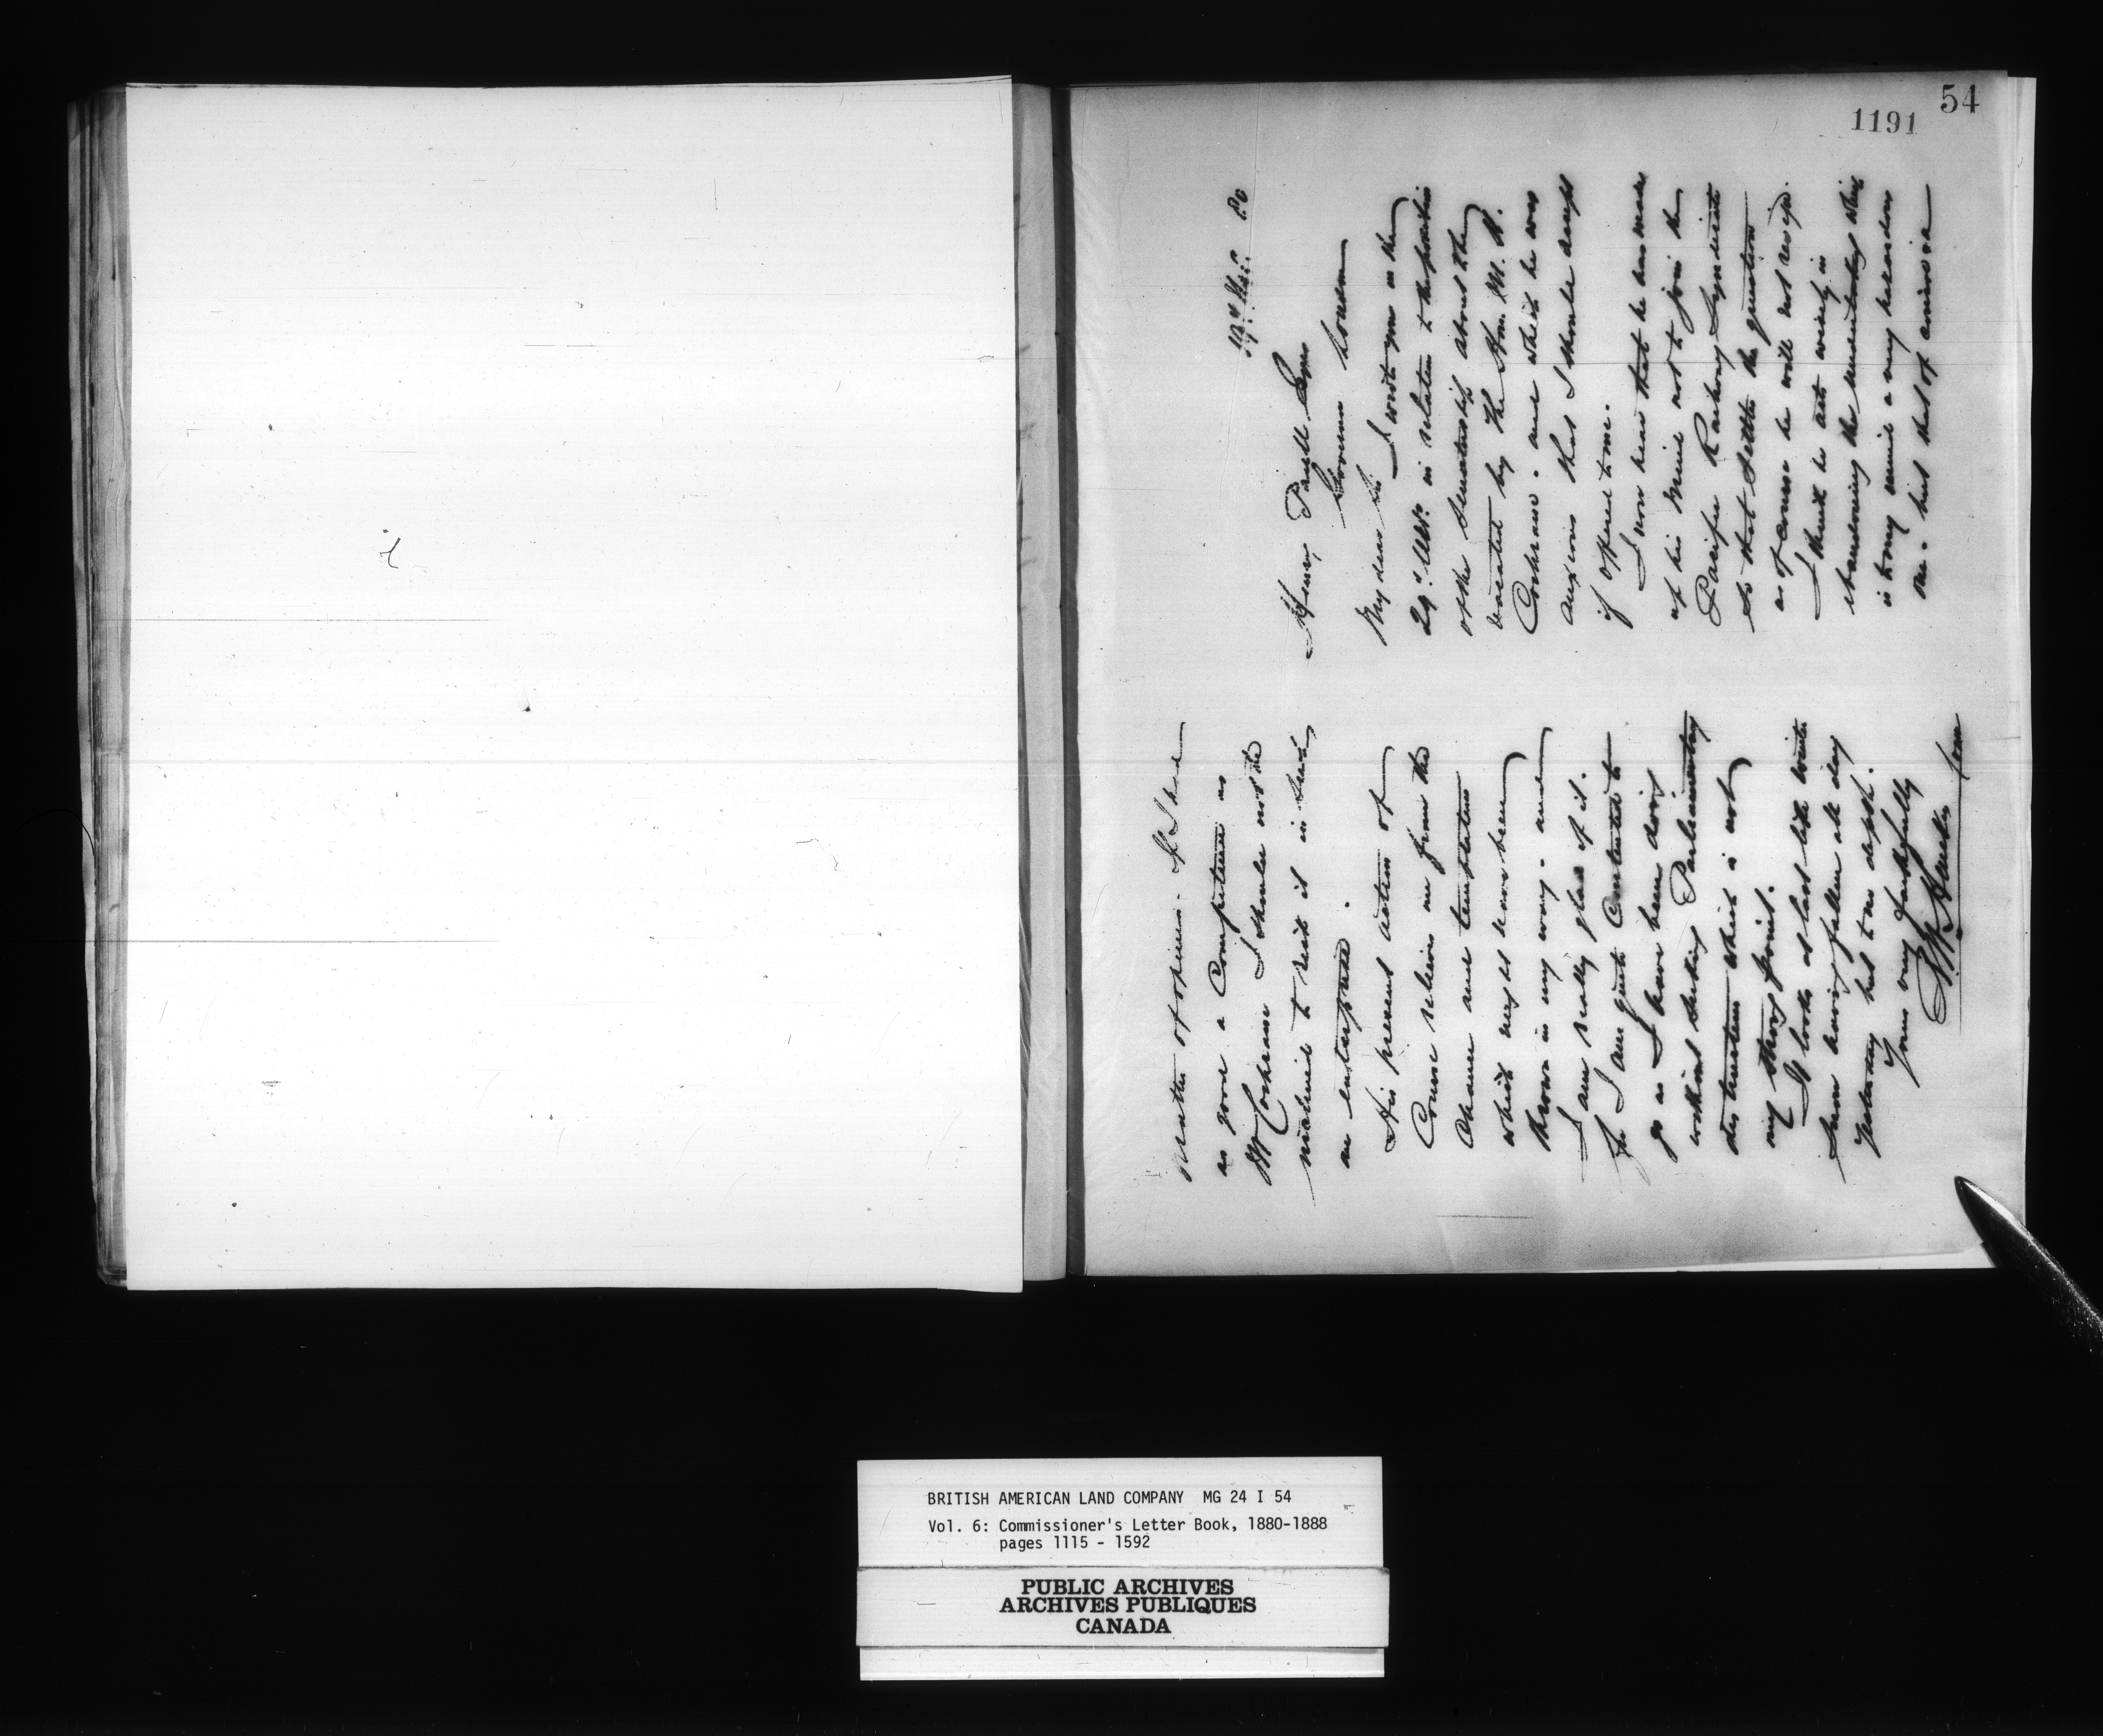 54
1191
Dec. 80
Henry Paull Esqr
Governor London
My dear Sir
I wrote you on the
29th Ulto. in relation to the position
of the Senatorship about to be
vacated by The Hon. M. H.
Cochrane. and which he was
anxious that I should accept
if offered to me.
I now hear that he has made
up his mind not to join the
Pacific Railway Syndicate
so that settles the question
as of course he will not resign.
I think he acts wisely in
abandoning the undertaking which
is to my mind a very hazardous
one. but that of course is a
matter of opinion. If I had
as good a Competence as
Mr Cochrane I should not be
inclined to risk it in such
an enterprise.
His present action of
Course relieves me from the
Chance and temptation
which might have been
thrown in my way. and
I am really glad of it.
for I am quite Contented to
go as I have been doing
without seeking Parliamentary
distinction which is not
my strong point.
It looks at last like winter
snow having fallen all day
yesterday but to no depth.
Yours very faithfully
Com
BRITISH AMERICAN LAND COMPANY MG 24 I 54
Vol. 6: Commissioner's Letter Book, 1880-1888
pages 1115 - 1592
PUBLIC ARCHIVES
ARCHIVES PUBLIQUES
CANADA